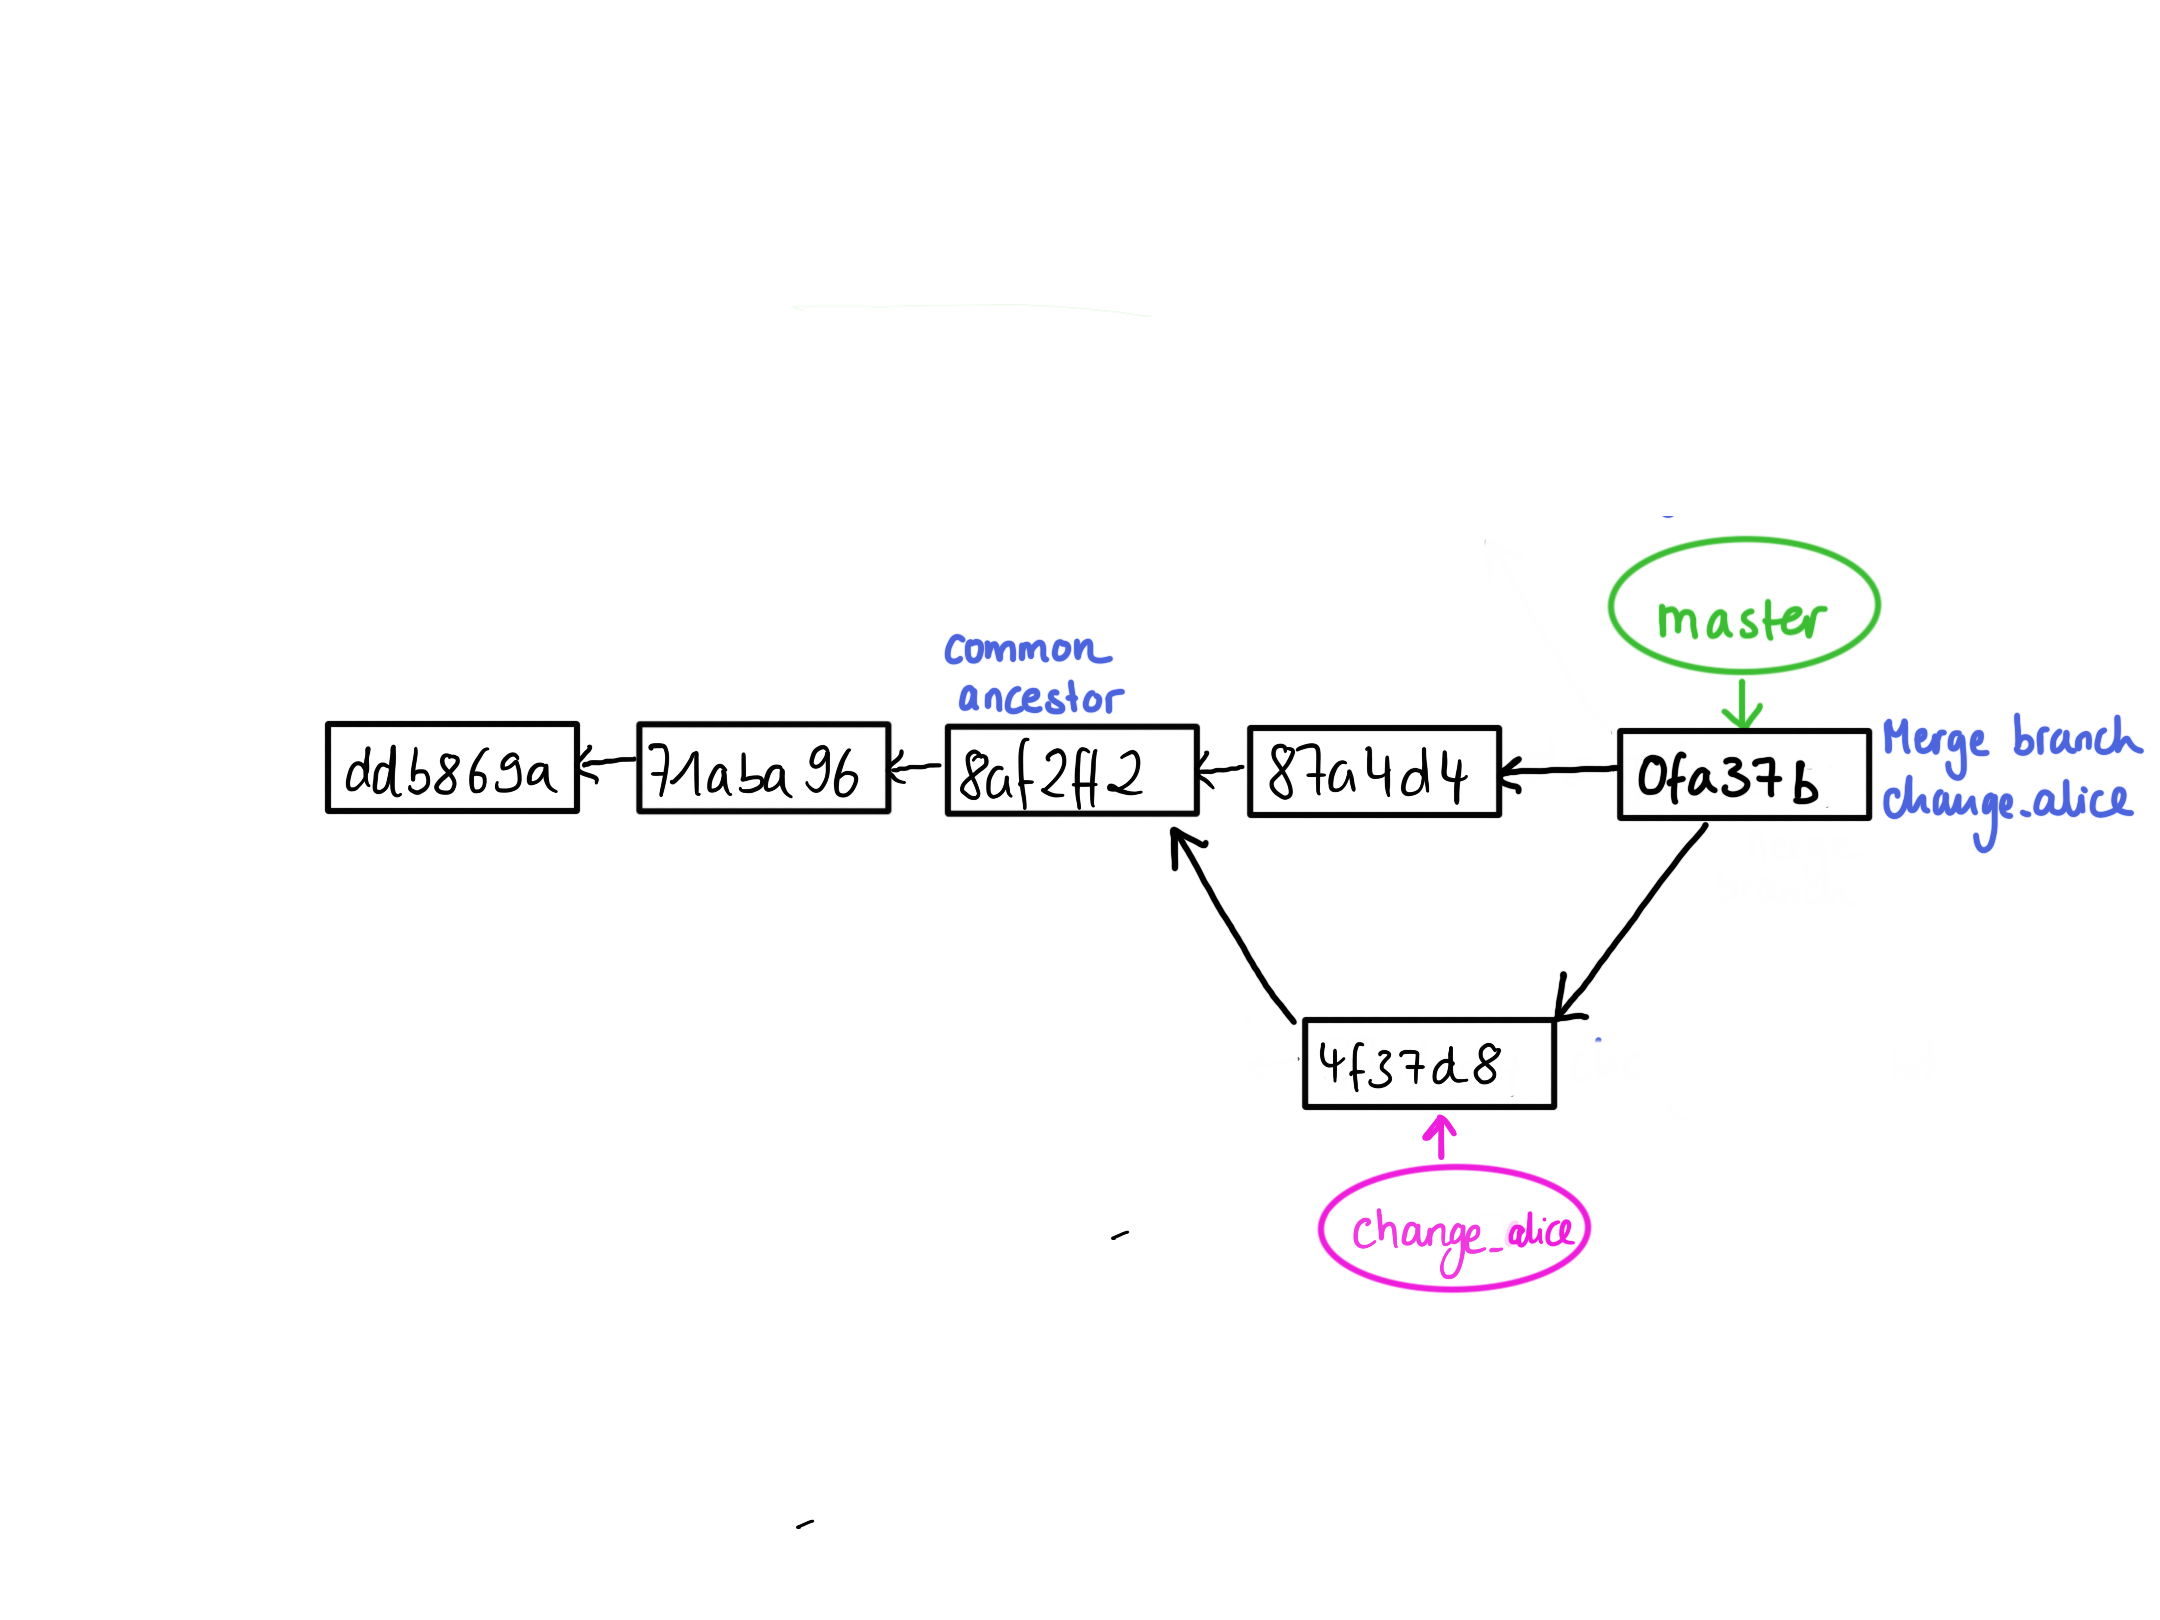 master
common
ancestor
ddb869a
71aba96
8af2ff2
87a4d4
0fa37b
Merge branch
change_alice
4f37d8
change_alice